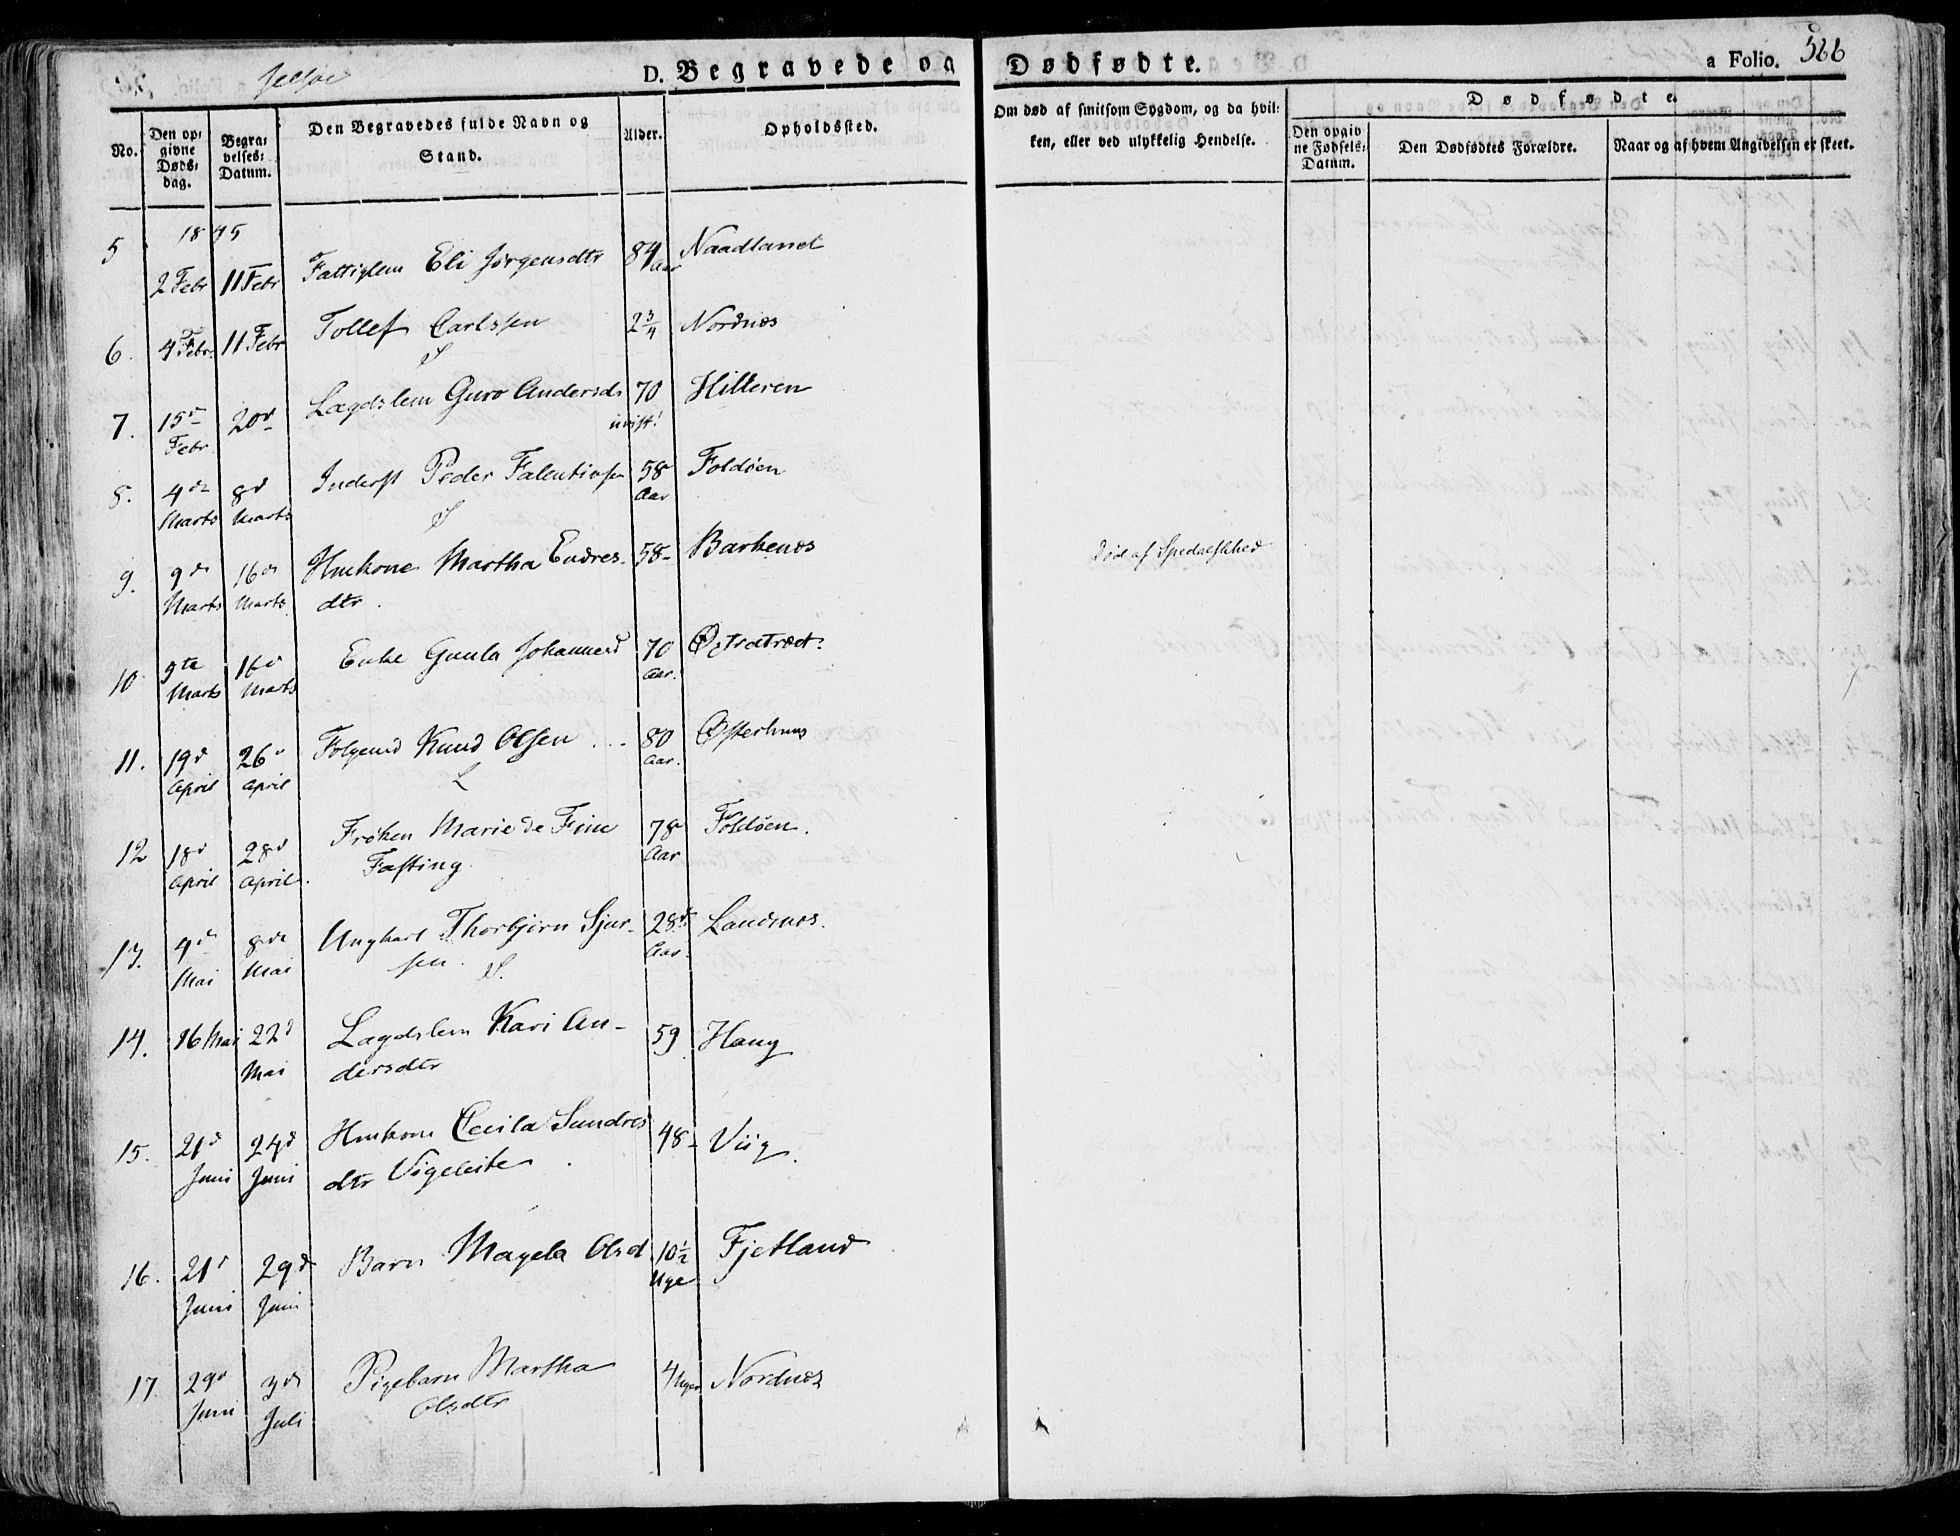 Jelsøe
D. Begravede og Dødfødte.
a Folio. 566
No.
Den opgivne Dødsdag.
Begravelses-Datum.
Den Begravedes fulde Navn og Stand.
Alder.
Opholdssted.
Om død af smitsom Sygdom, og da hvilken, eller ved ulykkelig Hendelse.
Dødfødte.
Den opgivne Fødsels-Datum.
Den Dødfødtes Forældre.
Naar og af hvem Angivelsen er skeet.
1845
5 2 Febr 11 Febr Fattiglem Eli Jørgensdtr 84 Aar Naadland
6. 4 Febr. 11 Febr Tollef Carlssen 2 3/4 Nordnæs
7. 15de Febr 20de Lægdslem Guro Andersd 70 Hilleren
8. 4de Marts 8d Marts Inderst Peder Falentinsen 58 Aar Foldøen
9. 9de Marts 16de Marts Huskone Martha Endresdtr. 58- Barkenæs Død af Spedalskhed
10 9te Marts 16d Marts Enke Gunla Johannesd 70 Aar.
11. 19d April 26d April Følgemd Knud Olsen 80 Aar. Østerhuus
12 18d April 28d April. Frøken Marie de Fine Fasting 78 Aar Foldøen.
13. 4de Mai 8de Mai Ungkarl Thorbjørn Sjursen. 28 Aar. Landsnæs.
14. 16 Mai 22d Mai Lægdslem Kari Andersdtr 59 Haug
15. 21d Juni 24d Juni Huskone Cecila Sundresdtr Vigeleite 48- Viig.
16. 21d Juni 29d Juni Barn Magela Olsd 10 1/2 Uge Fjetland
17. 29d Juni 3de Juli Pigebarn Martha Olsdtr 4 Uger Nordnæs